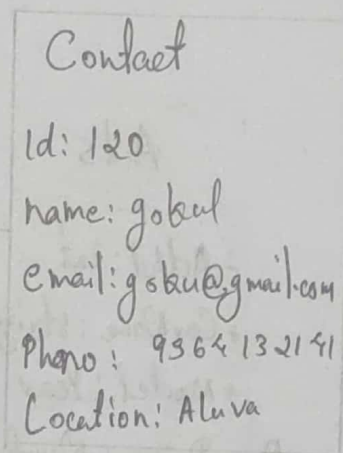 Contact
Id: 120
name: gokul
email: goku@gmail.com
Phono: 9964132141
Location: Aluva